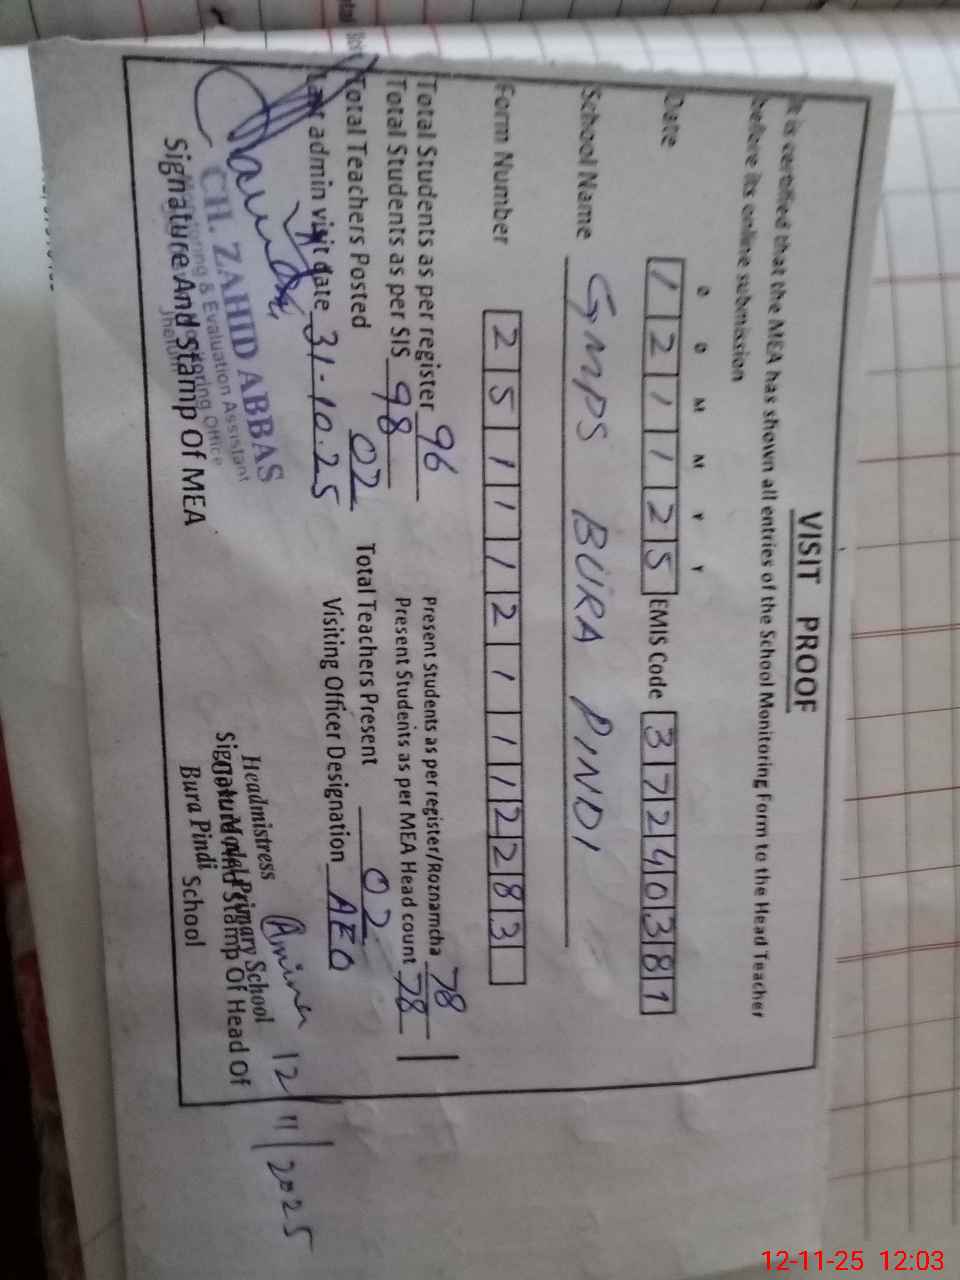 VISIT PROOF
It is certified that the MEA has shown all entries of the School Monitoring Form to the Head Teacher
before its online submission
D D M M Y Y
Date 1 2 1 1 2 5 EMIS Code 3 7 2 4 0 3 8 1
School Name GMPS BURA PINDI
Form Number 2 5 1 1 1 2 1 1 1 2 2 8 3
Total Students as per register 96 Present Students as per register/Roznamcha 78
Total Students as per SIS 98 Present Students as per MEA Head count 78
Total Teachers Posted 02 Total Teachers Present 02
Last admin visit date 31-10-25 Visiting Officer Designation AEO
CH. ZAHID ABBAS
Monitoring & Evaluation Assistant
Monitoring Office
Jhelum
Signature And Stamp Of MEA
Amina 12/11/2025
Headmistress
Model Primary School
Signature And Stamp Of Head Of
Bura Pindi
School
12-11-25 12:03